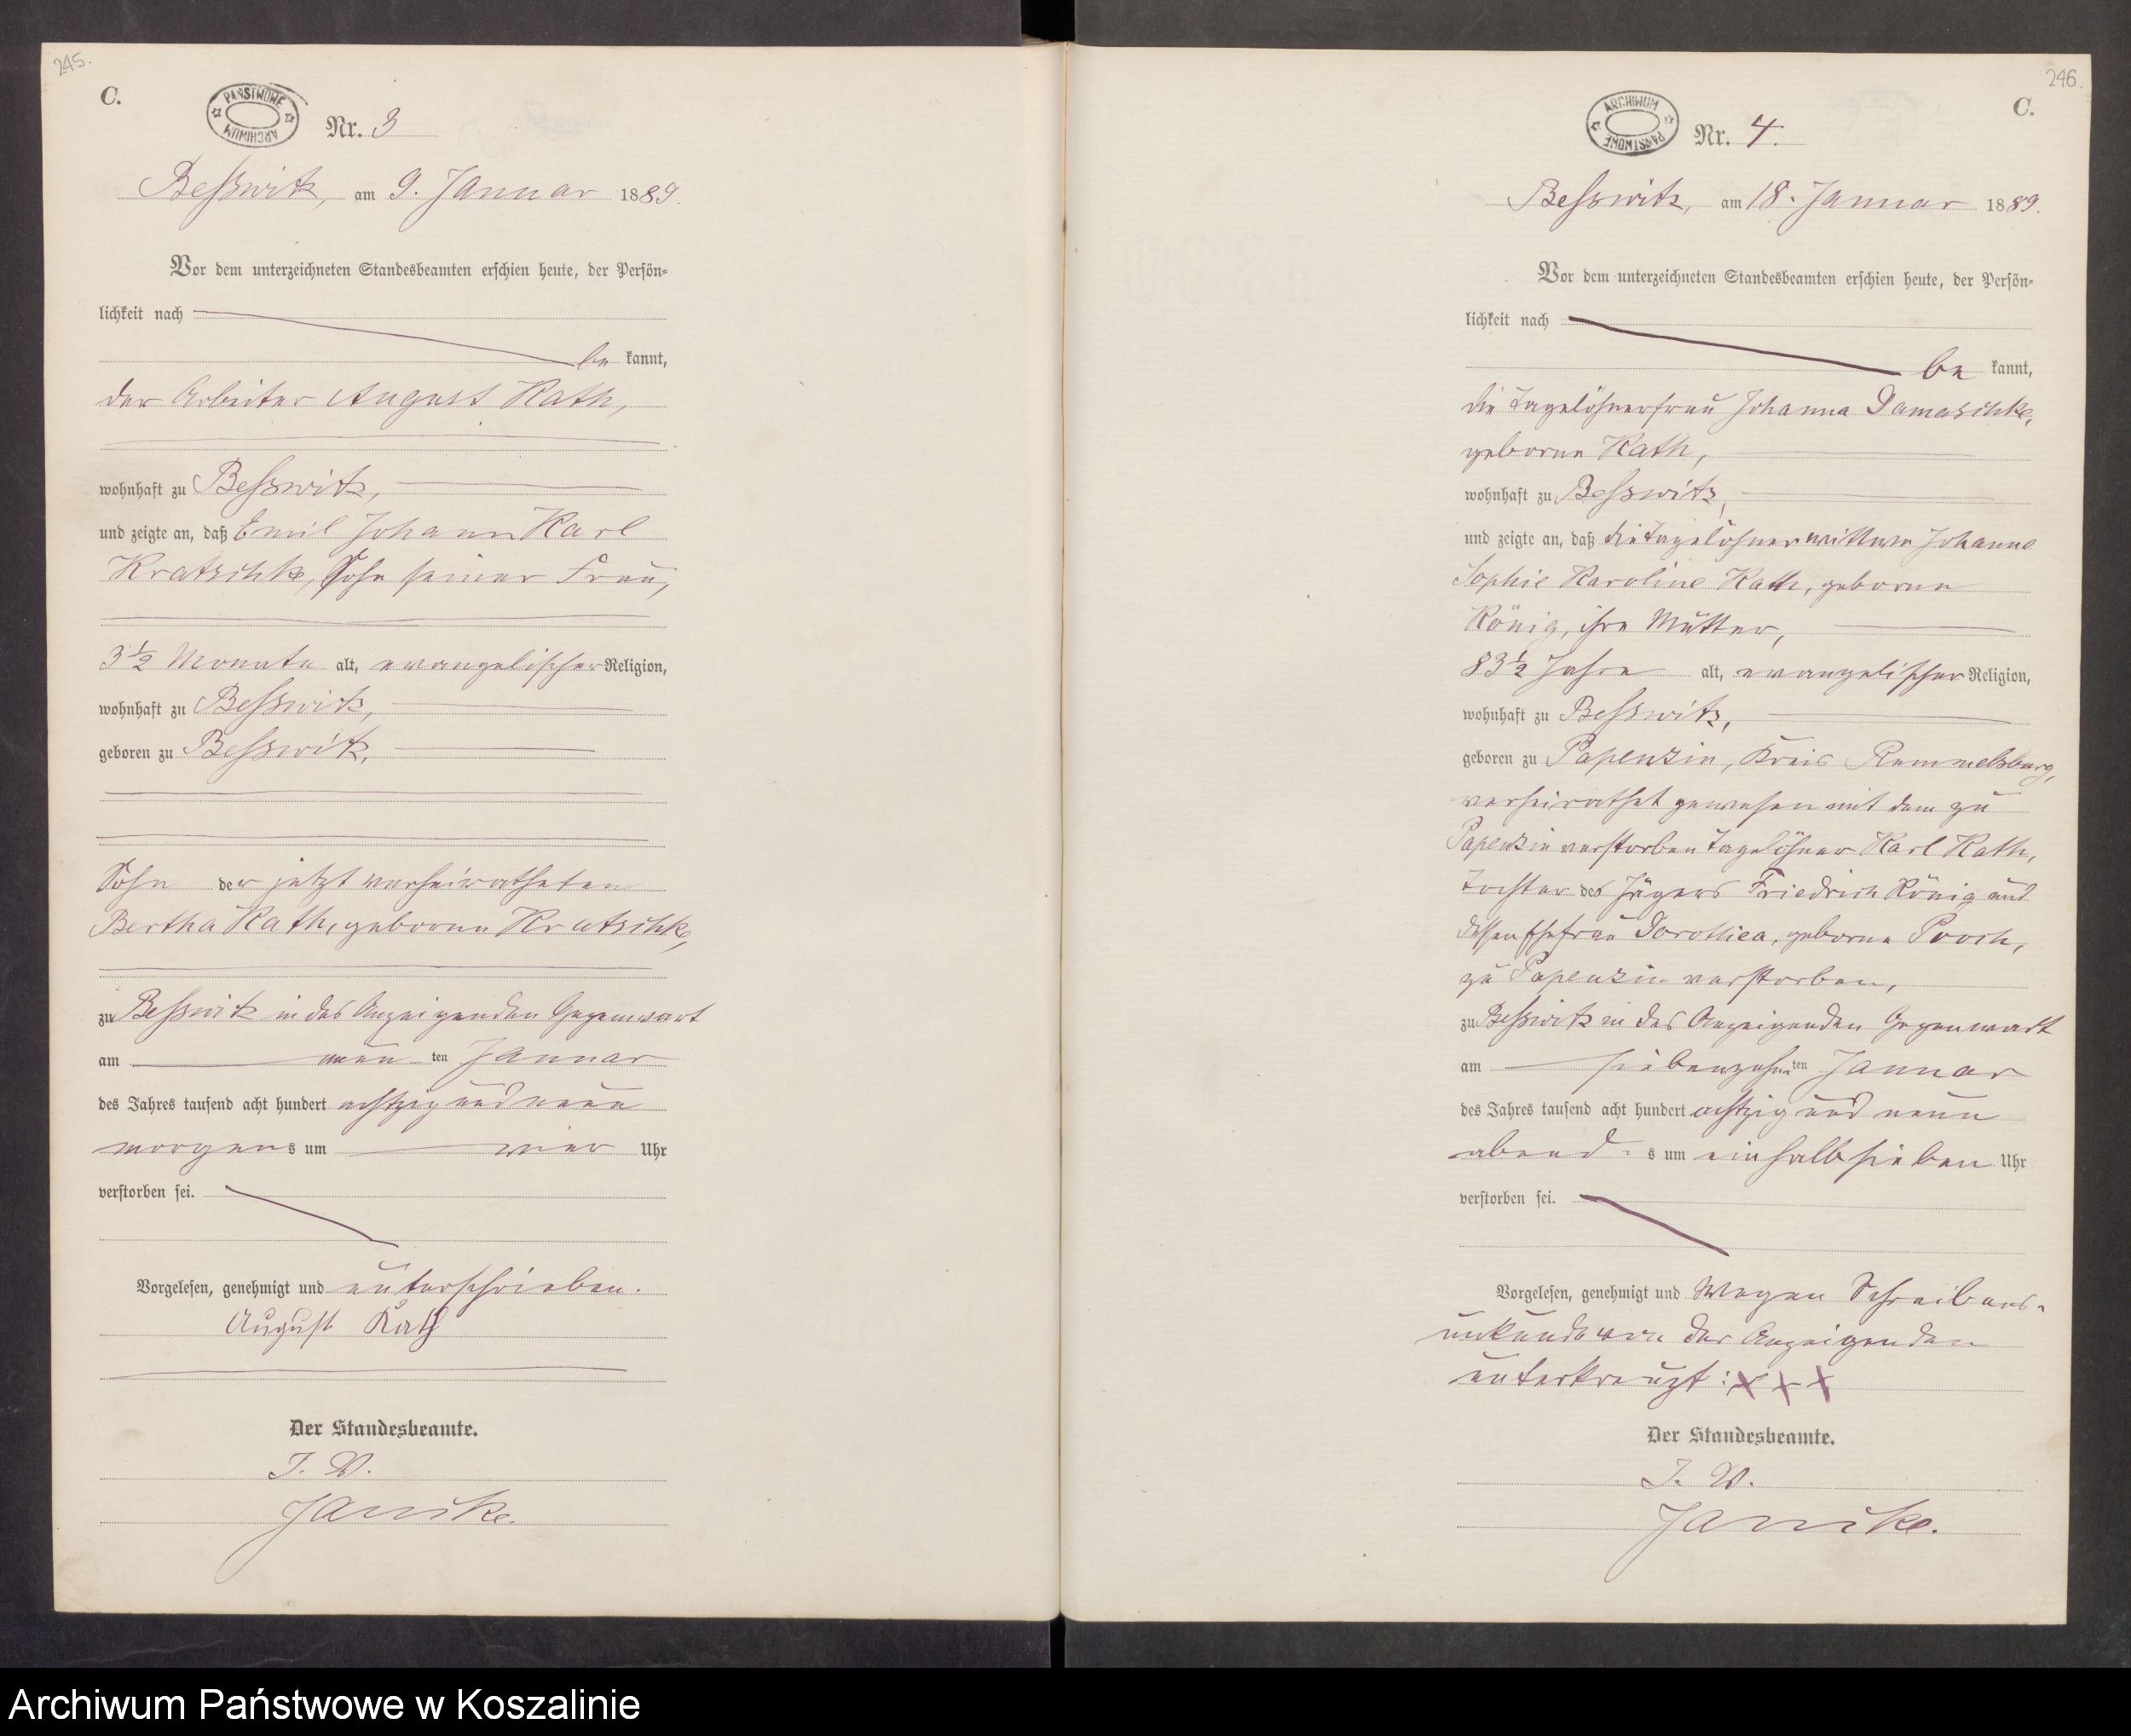 245.
C.
PAŃSTWOWE ARCHIWUM
Nr. 3
Besswitz, am 9. Januar 1889.
Vor dem unterzeichneten Standesbeamten erschien heute, der Persön-
lichkeit nach
be kannt,
der Arbeiter August Kath,
wohnhaft zu Besswitz,
und zeigte an, daß Emil Johann Karl
Kratschke, Sohn seiner Frau,
3½ Monate alt, evangelischer Religion,
wohnhaft zu Besswitz,
geboren zu Besswitz,
Sohn der jetzt verheiratheten
Bertha Kath, geborene Kratschke,
zu Besswitz in des Anzeigenden Gegenwart
am neun ten Januar
des Jahres tausend acht hundert achtzig und neun
morgens um vier Uhr
verstorben sei.
Vorgelesen, genehmigt und unterschrieben.
August Kath
Der Standesbeamte.
J. V.
Janike.
246.
C.
ARCHIWUM PAŃSTWOWE
Nr. 4.
Besswitz, am 18. Januar 1889.
Vor dem unterzeichneten Standesbeamten erschien heute, der Persön-
lichkeit nach
be kannt,
die Tagelöhnerfrau Johanna Damaschke,
geborne Kath,
wohnhaft zu Besswitz,
und zeigte an, daß die Tagelöhnerwittwe Johanne
Sophie Karoline Kath, geborne
König, ihre Mutter,
83½ Jahre alt, evangelischer Religion,
wohnhaft zu Besswitz,
geboren zu Papenzin, Kreis Rummelsburg,
verheirathet gewesen mit dem zu
Papenzin verstorben Tagelöhner Karl Kath,
Tochter des Jägers Friedrich König und
dessen Ehefrau Dorothea, geborne Pooch,
zu Papenzin verstorben,
zu Besswitz in der Anzeigenden Gegenwart
am siebenzehn ten Januar
des Jahres tausend acht hundert achtzig und neun
abend s um einhalb sieben Uhr
verstorben sei.
Vorgelesen, genehmigt und Wegen Schreibens-
unkunde von der Anzeigenden
unterkreuzt: X X X
Der Standesbeamte.
J. V.
Janike.
Archiwum Państwowe w Koszalinie